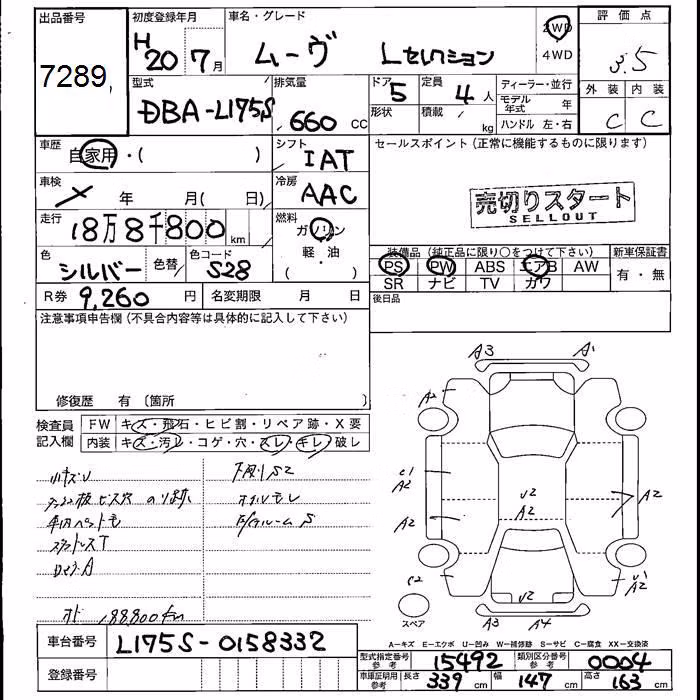 出品番号
7289
初度登録年月
H20 7月
車名・グレード
ムーヴ Lセレクション
2WD
4WD
評価点
3.5
外装 内装
C C
型式
DBA-L175S
排気量
660 CC
ドア 5
形状
定員 4人
積載 kg
ディーラー・並行
モデル年式 年
ハンドル 左・右
車歴
自家用・( )
シフト
IAT
セールスポイント (正常に機能するものに限ります)
車検
年 月( 日)
冷房
AAC
売切りスタート
SELLOUT
走行
18万8千800 km
燃料
ガソリン
軽・油
( )
色
シルバー
色替
色コード
S28
装備品 (純正品に限り○をつけて下さい)
新車保証書
PS PW ABS エアB AW
有・無
SR ナビ TV カワ
R券 9,260円
名変期限 月 日
後日品
注意事項申告欄 (不具合内容等は具体的に記入して下さい)
修復歴 有 〔箇所 〕
検査員
記入欄
FW キズ・飛石・ヒビ割・リペア跡・X要
内装 キズ・汚レ・コゲ・穴・スレ・キレ・破レ
小キズU
下廻りS2
オイルモレ
車内ペット毛
スタットレスT
188,800km
A3 A1
A2
C1
A2
U2
A2
A2
A2
C2
U2
U1
A2
スペア
A3 A4
車台番号
L175S-0158332
登録番号
A-キズ E-エクボ U-凹み W-補修跡 S-サビ C-腐食 XX-交換済
型式指定番号 参考 15492
類別区分番号 参考 0004
車庫証明用 参考 長さ 339 cm 幅 147 cm 高さ 163 cm